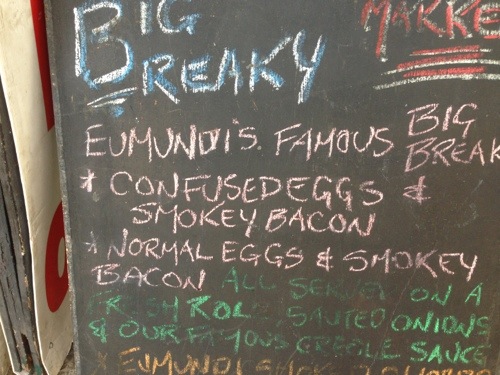 BIG
BREAKY
MARKE
EUMUNDI'S. FAMOUS BIG
BREAK
* CONFUSED EGGS &
SMOKEY BACON
* NORMAL EGGS & SMOKEY
BACON ALL SERVED ON A
FRESH ROLL SAUTED ONIONS
& OUR FAMOUS CREOLE SAUCE
* EUMUNDI